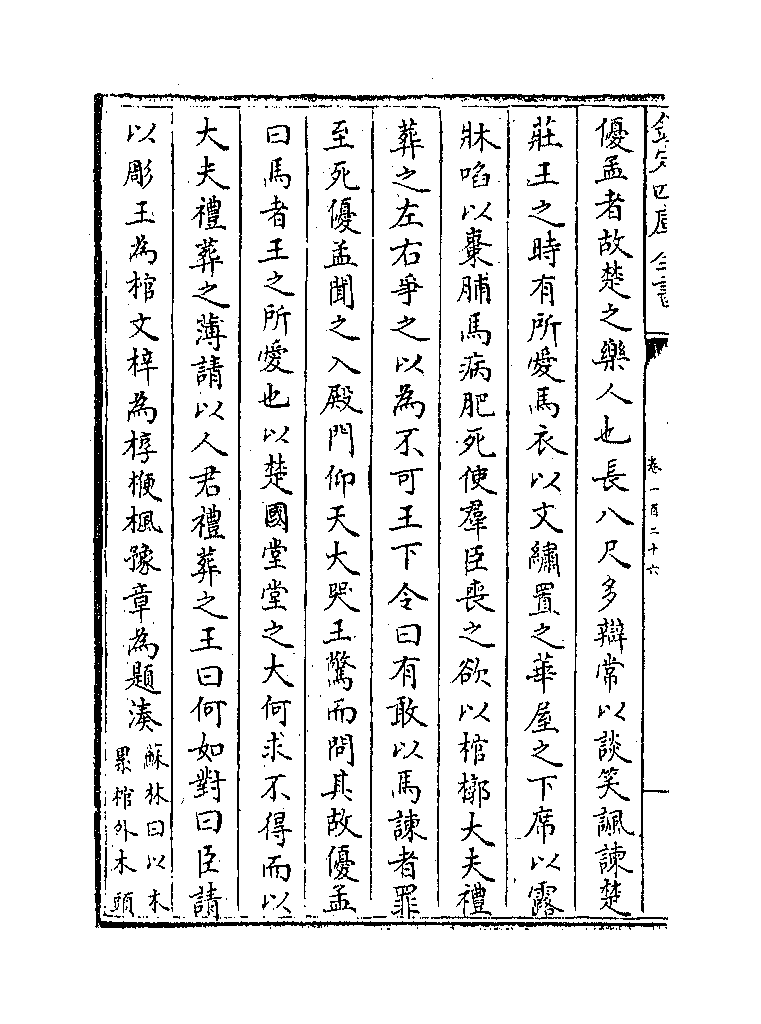 欽定四庫全書
卷一百二十六
優孟者故楚之樂人也長八尺多辯常以談笑諷諫楚
莊王之時有所愛馬衣以文繡置之華屋之下席以露
牀啗以棗脯馬病肥死使羣臣喪之欲以棺槨大夫禮
葬之左右爭之以為不可王下令曰有敢以馬諫者罪
至死優孟聞之入殿門仰天大哭王驚而問其故優孟
曰馬者王之所愛也以楚國堂堂之大何求不得而以
大夫禮葬之薄請以人君禮葬之王曰何如對曰臣請
以彫玉為棺文梓為椁楩楓豫章為題湊
蘇林曰以木
累棺外木頭